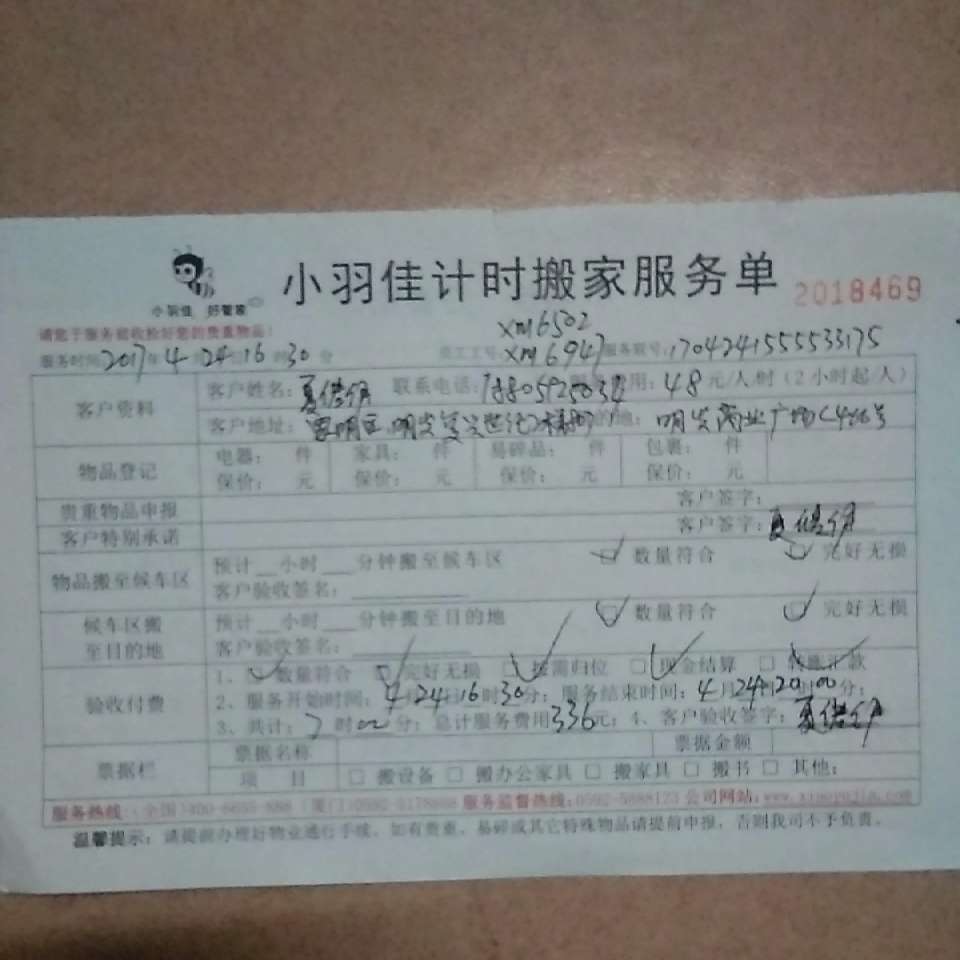 小羽佳 好管家
小羽佳计时搬家服务单 2018469
请您于服务前收检好您的贵重物品!
XM6502
服务时间2017年4月24日16时30分 员工工号:XM6947 服务账号:1704241555533175
客户资料
客户姓名: 联系电话: 费用:48元/人/时(2小时起/人)
客户地址:思明区 明发 的地:明发商业广场C466号
物品登记
电器: 件 家具: 件 易碎品: 件 包裹: 件
保价: 元 保价: 元 保价: 元 保价: 元
贵重物品申报 客户签字:
客户特别承诺 客户签字:
物品搬至候车区
预计__小时___分钟搬至候车区 数量符合 完好无损
客户验收签名:
候车区搬至目的地
预计__小时___分钟搬至目的地 数量符合 完好无损
客户验收签名:
验收付费
1、数量符合 完好无损 按需归位 现金结算 转账汇款
2、服务开始时间:4月24日16时30分;服务结束时间:4月24日20时00分;
3、共计:7时00分;总计服务费用336元;4、客户验收签字:
票据栏
票据名称 票据金额
项 目 搬设备 搬办公家具 搬家具 搬书 其他:
服务热线:(全国)400-6655-888 (厦门)0592-5178868 服务监督热线:0592-5888123 公司网站:www.xiaoyujia.com
温馨提示:请提前办理好物业通行手续,如有贵重、易碎或其它特殊物品请提前申报,否则我司不予负责。